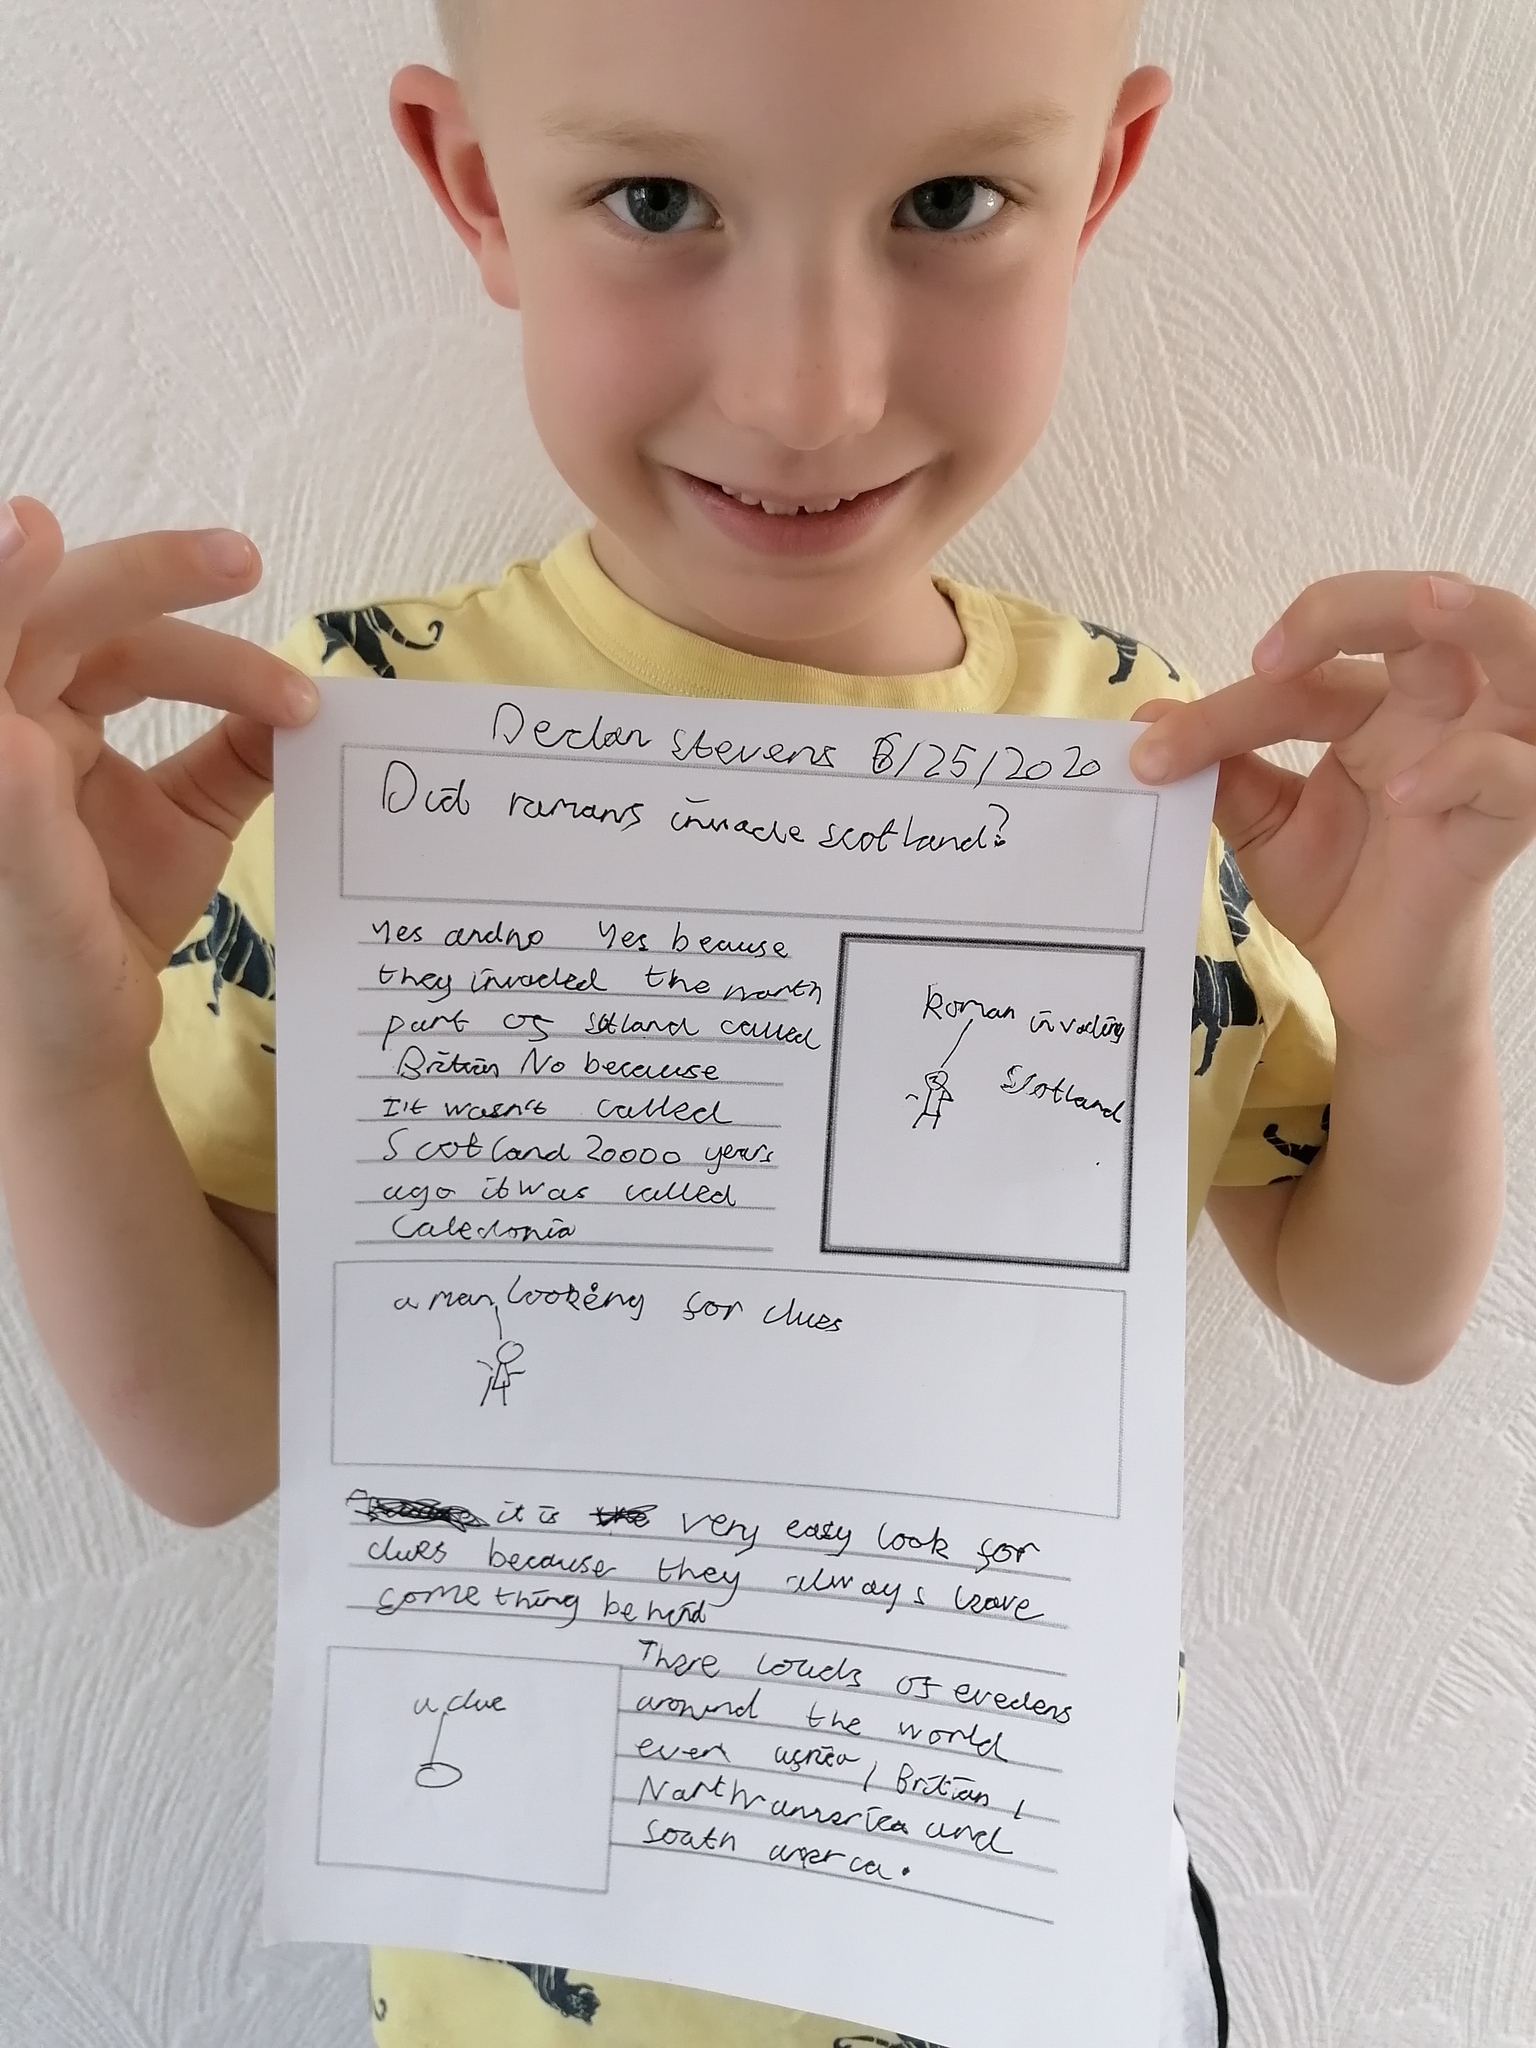 Declan Stevens 6/25/2020
Did romans invade scotland?
Yes and no Yes because
they invaded the north
part of scotland called
Britain No because
It wasn't called
Scotland 20000 years
ago it was called
Caledonia
Roman invading
Scotland
a man looking for clues
it is very easy look for
clues because they always leave
something behind
a clue
There louds of evedens
around the world
even africa, Britian,
North amerrica and
South amerca.